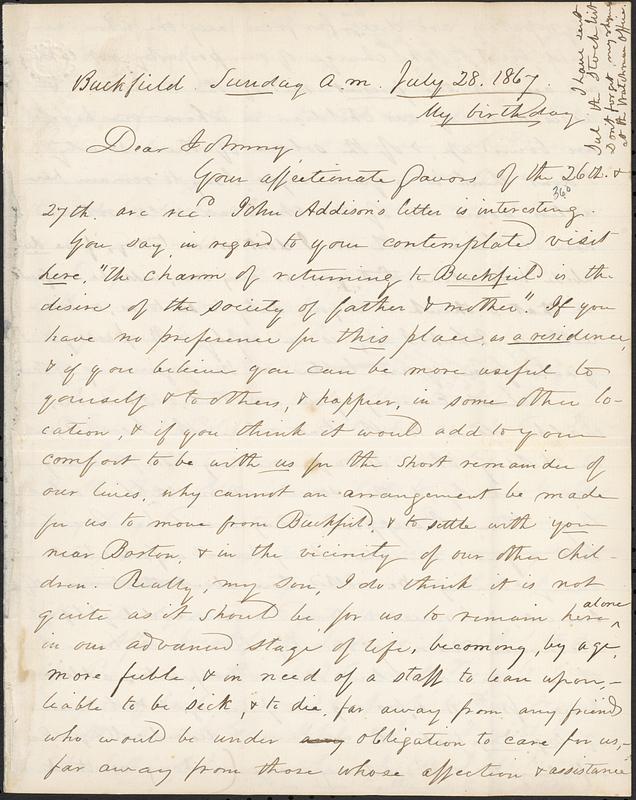 Buckfield. Sunday A.M. July 28. 1867.
My birthday
Dear Johnny,
Your affectionate favors of the 26th. &
27th. are rec'd. John Addison's letter is interesting.
You say, in regard to your contemplated visit
here, "the charm of returning to Buckfield is the
desire of the society of father & mother". If you
have no preference for this place, as a residence,
& if you believe you can be more useful to
yourself & to others, & happier, in some other lo-
cation, & if you think it would add to your
comfort to be with us for the short remainder of
our lives, why cannot an arrangement be made
for us to move from Buckfield, & to settle with you
near Boston, & in the vicinity of our other chil-
dren. Really, my son, I do think it is not
quite as it should be, for us to remain here alone,
in our advanced stage of life, becoming, by age,
more feeble, & in need of a staff to lean upon,-
liable to be sick, & to die, far away from any friend
who would be under any obligation to care for us,-
far away from those whose affection & assistance
I have sent
Sat. the Stock list
Don't forget my
at the Watchman Office.